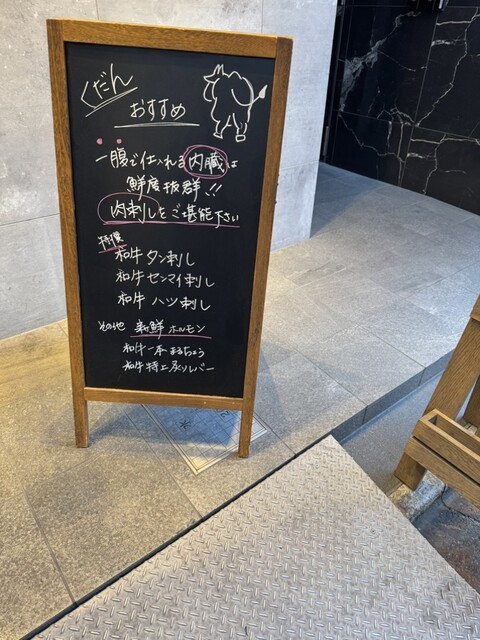 くだん
おすすめ
一腹で仕入れる内臓は
鮮度抜群!!
肉刺しをご堪能下さい
特撰
和牛タン刺し
和牛センマイ刺し
和牛 ハツ刺し
その他 新鮮ホルモン
和牛一本まるちょう
和牛特上炙りレバー